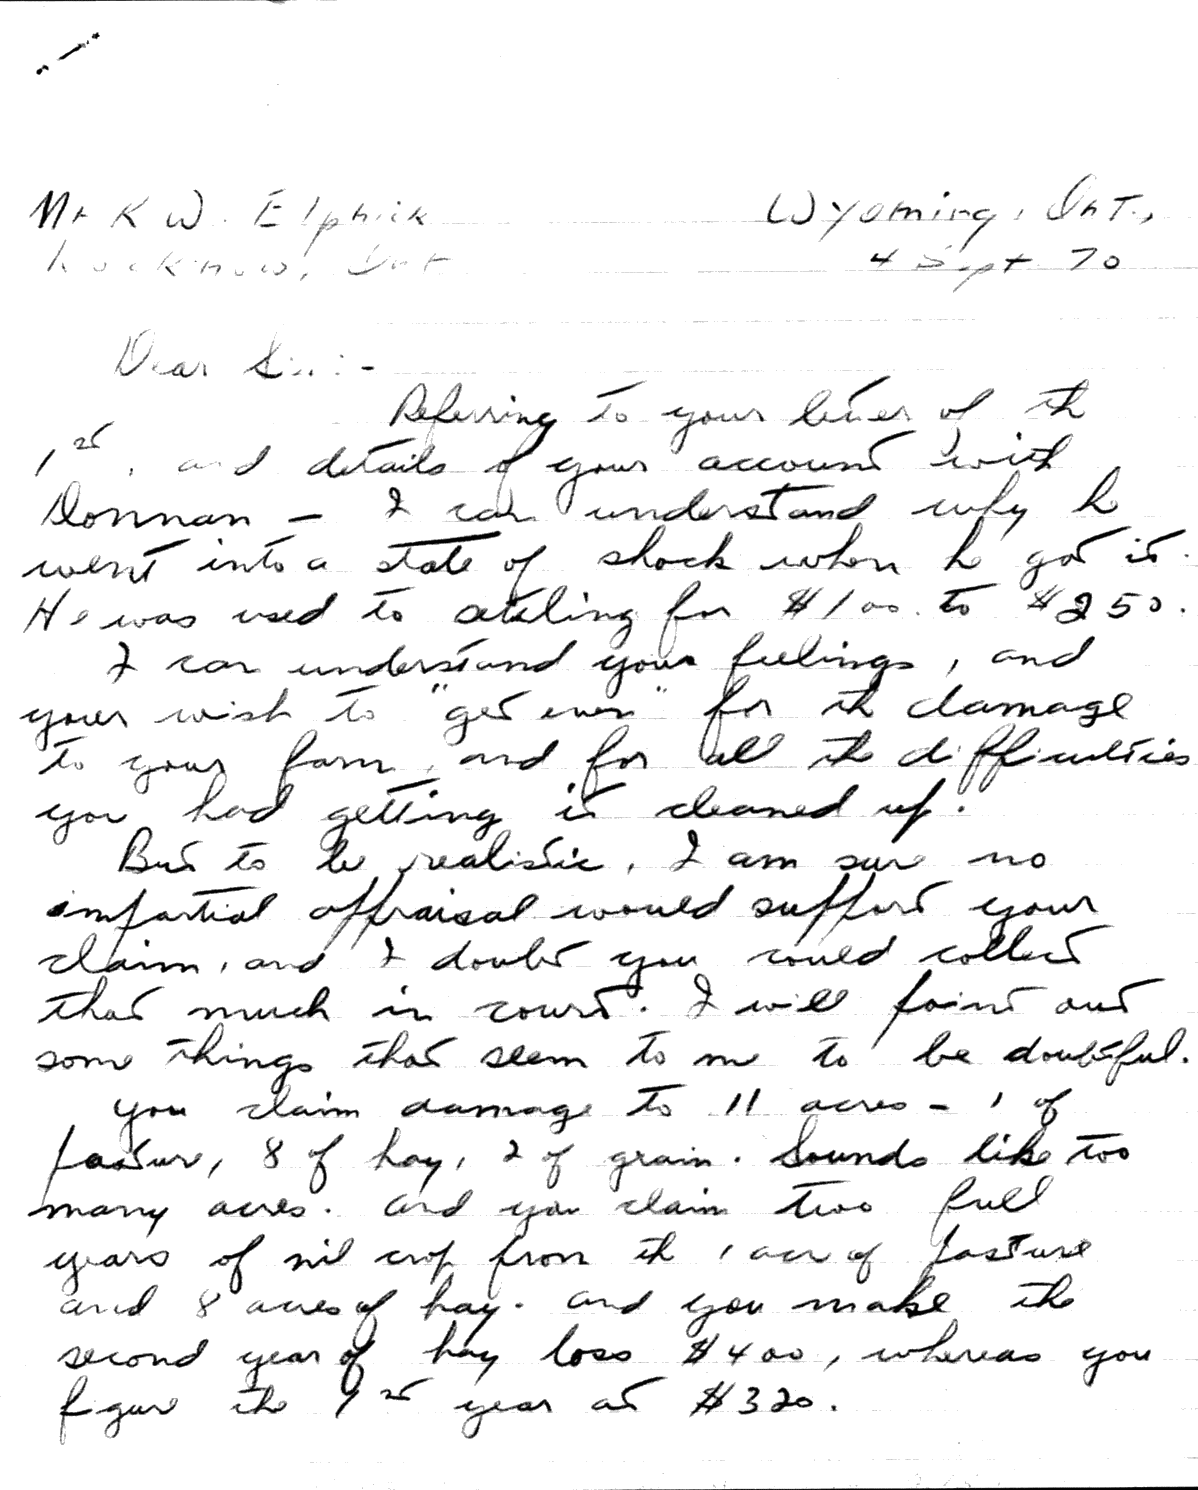 Mr K W. Elphick
Wyoming, Ont.,
Lucknow, Ont
4 Sept 70
Dear Sir:-
Referring to your letter of the
1st, and details of your account with
Donnan - I can understand why he
went into a state of shock when he got it.
He was used to settling for $100. to $250.
I can understand your feelings, and
your wish to "get even" for the damage
to your farm, and for all the difficulties
you had getting it cleaned up.
But to be realistic, I am sure no
impartial appraisal would support your
claim, and I doubt you could collect
that much in court. I will point out
some things that seem to me to be doubtful.
You claim damage to 11 acres - 1 of
pasture, 8 of hay, 2 of grain. Sounds like too
many acres. And you claim two full
years of nil crop from the 1 acre of pasture
and 8 acres of hay. And you make the
second year of hay loss $400, whereas you
figure the 1st year at $320.